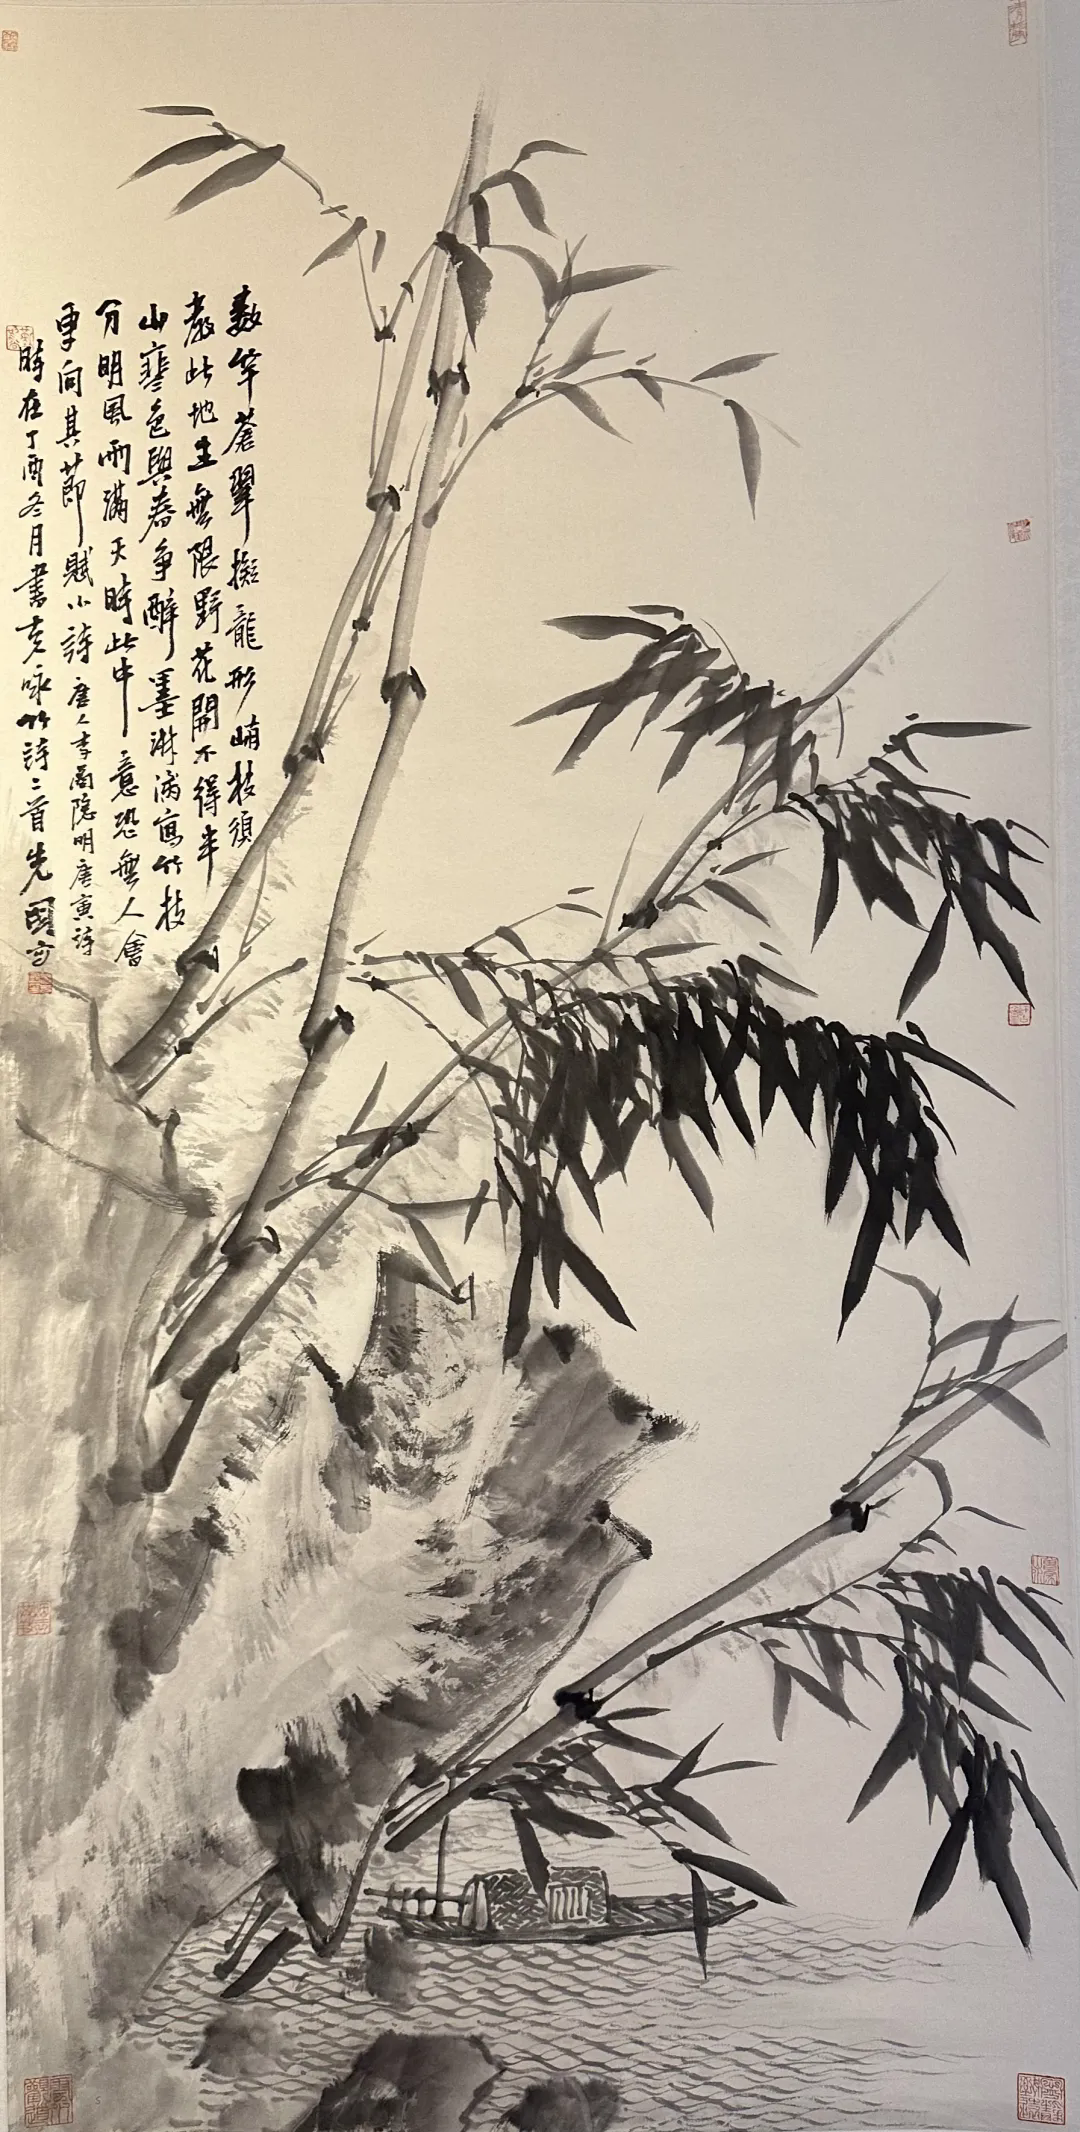 數竿蒼翠擬龍形峭拔須
教此地生無限野花開不得半
山寒色與春爭醉墨淋漓寫竹枝
分明風雨滿天時此中一意恐無人會
更向其節賦小詩 唐人李商隱明唐寅詩
時在丁酉冬月書克咏竹詩二首先國